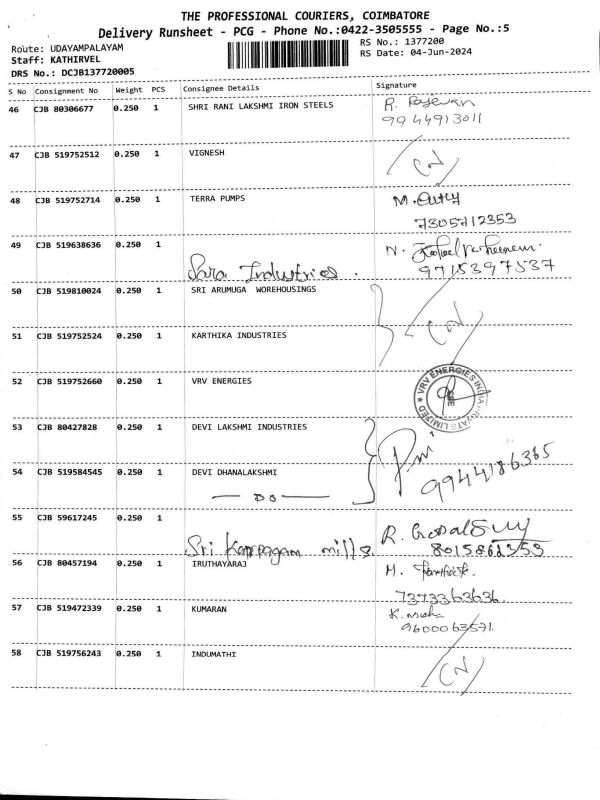 THE PROFESSIONAL COURIERS, COIMBATORE
Delivery Runsheet - PCG - Phone No.:0422-3505555 - Page No.:5
Route: UDAYAMPALAYAM
Staff: KATHIRVEL
DRS No.: DCJB137720005
RS No.: 1377200
RS Date: 04-Jun-2024
S No Consignment No Weight PCS Consignee Details Signature
46 CJB 80306677 0.250 1 SHRI RANI LAKSHMI IRON STEELS R.
9944913011
47 CJB 519752512 0.250 1 VIGNESH
48 CJB 519752714 0.250 1 TERRA PUMPS M.
7305712353
49 CJB 519638636 0.250 1 N.
Sara Industries. 9715397537
50 CJB 519810024 0.250 1 SRI ARUMUGA WOREHOUSINGS
51 CJB 519752524 0.250 1 KARTHIKA INDUSTRIES
52 CJB 519752660 0.250 1 VRV ENERGIES
VRV ENERGIES INDIA PRIVATE LIMITED
53 CJB 80427828 0.250 1 DEVI LAKSHMI INDUSTRIES
54 CJB 519584545 0.250 1 DEVI DHANALAKSHMI 9944186365
— DO —
55 CJB 59617245 0.250 1 R.
Sri Karpagam mills
56 CJB 80457194 0.250 1 IRUTHAYARAJ M.
7373363636
57 CJB 519472339 0.250 1 KUMARAN K.
9600063571
58 CJB 519756243 0.250 1 INDUMATHI